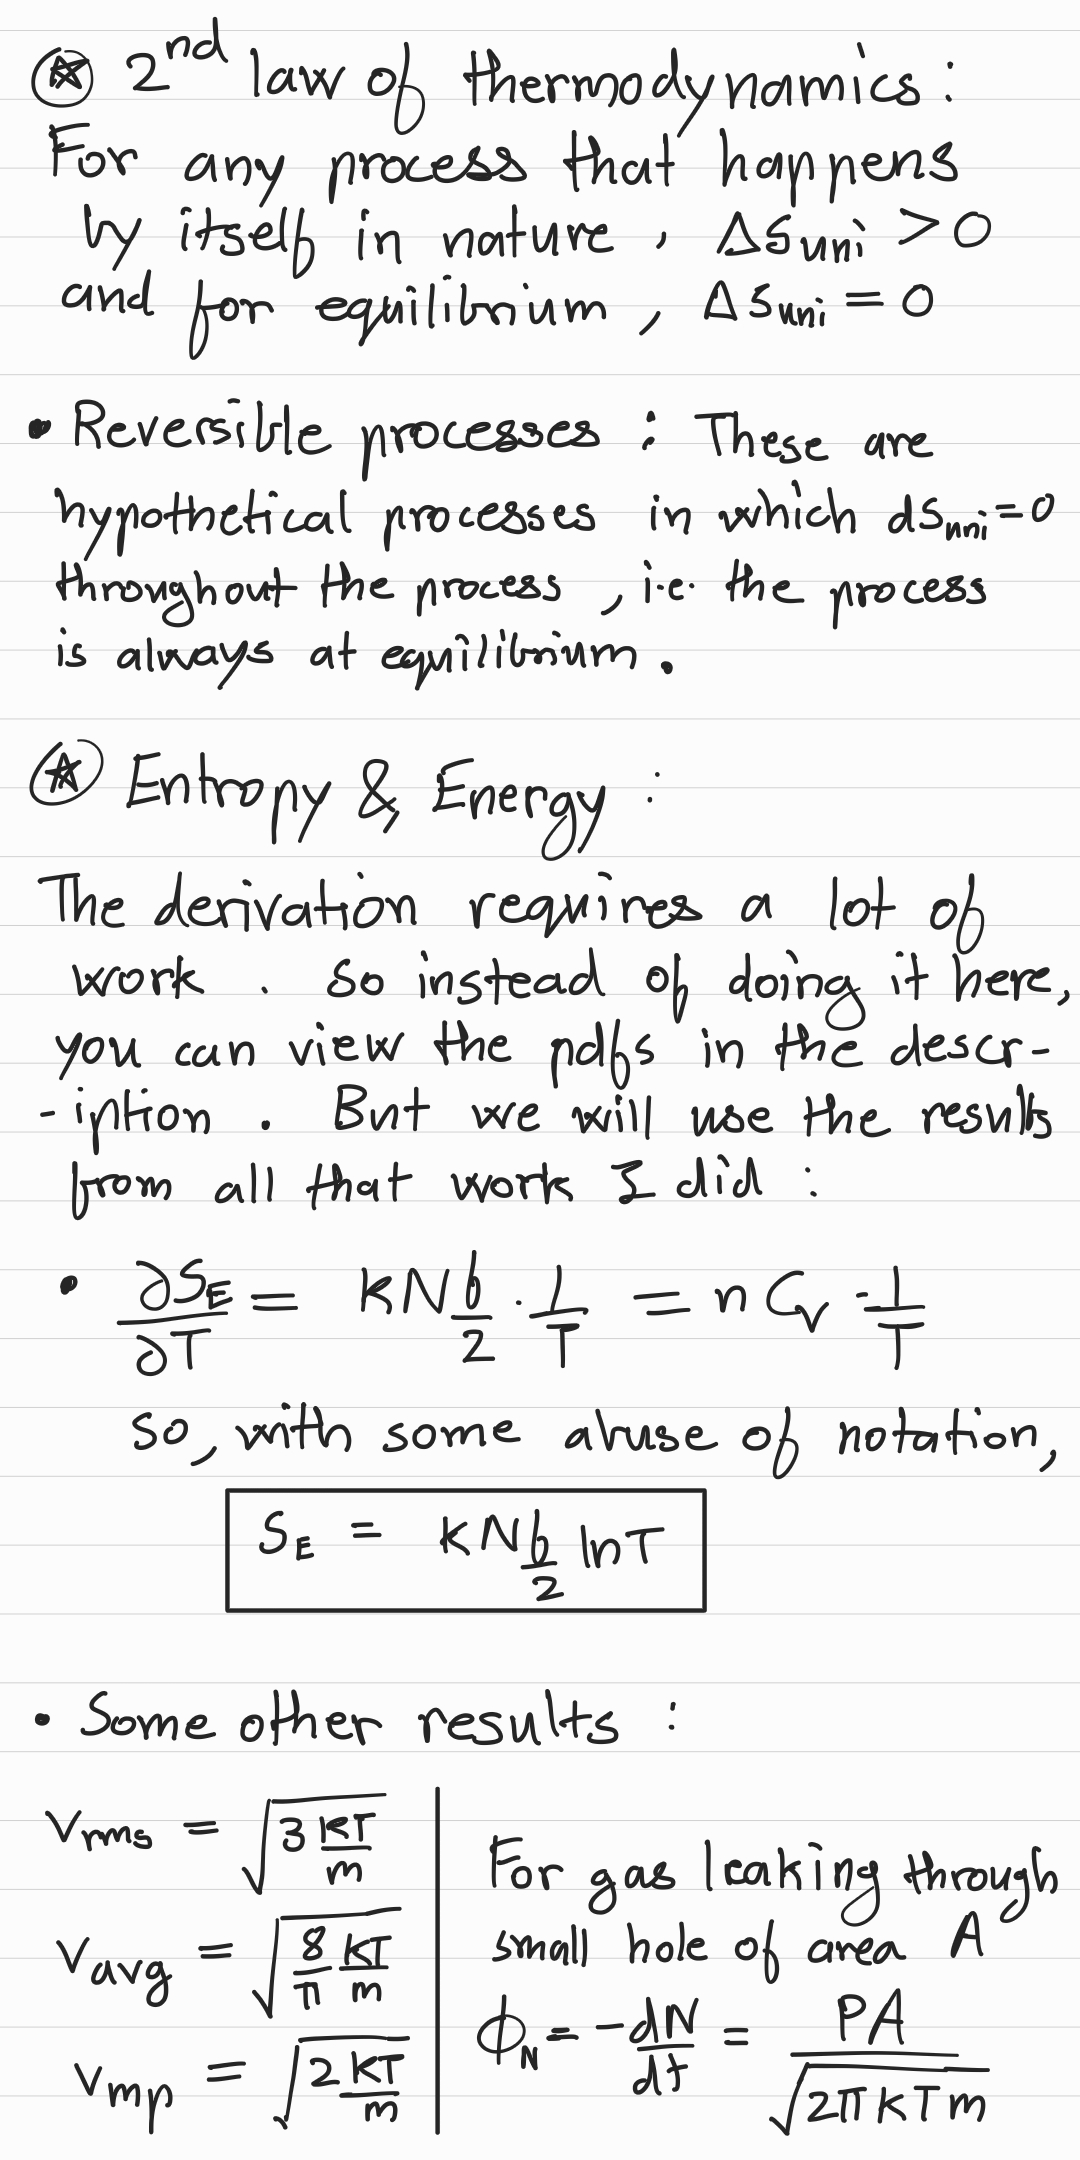 ⍟ 2nd law of thermodynamics :
For any process that happens
by itself in nature , ΔSuni > 0
and for equilibrium , ΔSuni = 0
• Reversible processes : These are
hypothetical processes in which dSuni = 0
throughout the process , i.e. the process
is always at equilibrium .
⍟ Entropy & Energy :
The derivation requires a lot of
work . So instead of doing it here,
you can view the pdfs in the descr-
-iption . But we will use the results
from all that work I did :
• ∂S_E/∂T = kN f/2 · 1/T = n Cv · 1/T
So, with some abuse of notation,
S_E = kN f/2 lnT
• Some other results :
v_rms = √(3 kT/m)
v_avg = √(8/π kT/m)
v_mp = √(2 kT/m)
For gas leaking through
small hole of area A
ϕ_N = - dN/dt = PA/√(2π kTm)